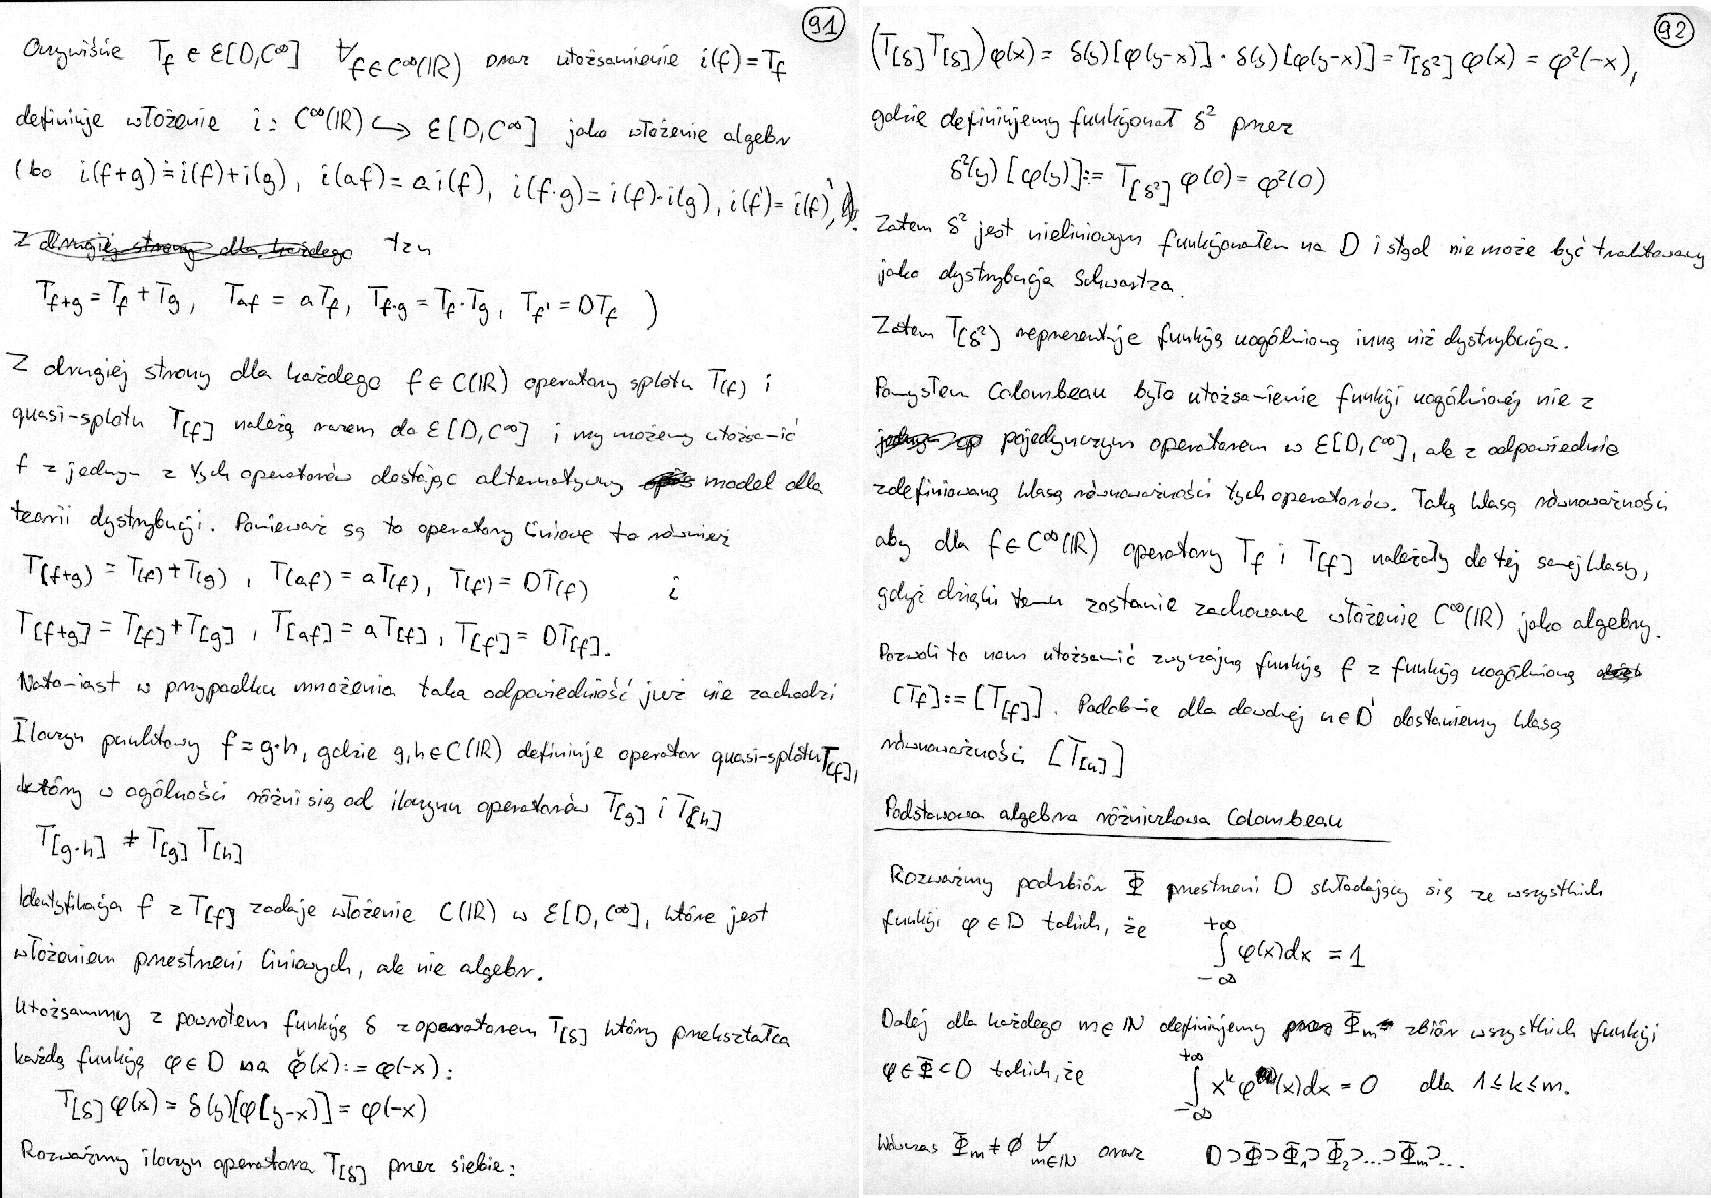 91
Oczywiście T_f ∈ ℰ[D,C^∞] ∀_{f∈C^∞(ℝ)} oraz utożsamienie i(f)=T_f
definiuje włożenie i: C^∞(ℝ) ↪ ℰ[D,C^∞] jako włożenie algebr
(bo i(f+g)=i(f)+i(g), i(af)=a i(f), i(f·g)=i(f)·i(g), i(f')=i(f)',
Z drugiej strony dla każdego tzn
T_{f+g}=T_f+T_g, T_{af}=aT_f, T_{f·g}=T_f·T_g, T_{f'}=DT_f )
Z drugiej strony dla każdego f∈C(ℝ) operatory splotu T_(f) i
quasi-splotu T_[f] należą razem do ℰ[D,C^∞] i my możemy utożsamić
f z jednym z tych operatorów dostając alternatywny model dla
teorii dystrybucji. Ponieważ są to operatory liniowe to również
T_(f+g)=T_(f)+T_(g), T_(af)=aT_(f), T_(f')=DT_(f) i
T_[f+g]=T_[f]+T_[g], T_[af]=aT_[f], T_[f']=DT_[f].
Natomiast w przypadku mnożenia taka odpowiedniość już nie zachodzi
Iloczyn punktowy f=g·h, gdzie g,h∈C(ℝ) definiuje operator quasi-splotu T_[f],
który w ogólności różni się od iloczynu operatorów T_[g] i T_[h]
T_[g·h] ≠ T_[g] T_[h]
Identyfikacja f z T_[f] zadaje włożenie C(ℝ) w ℰ[D,C^∞], które jest
włożeniem przestrzeni liniowych, ale nie algebr.
Utożsammy z powrotem funkcję δ z operatorem T_[δ] który przekształca
każdą funkcję φ∈D na φ̌(x):=φ(-x):
T_[δ]φ(x)=δ(y)[φ(y-x)]=φ(-x)
Rozważmy iloczyn operatora T_[δ] przez siebie:
92
(T_[δ]T_[δ])φ(x)=δ(y)[φ(y-x)]·δ(y)[φ(y-x)]=T_[δ²]φ(x)=φ²(-x),
gdzie definiujemy funkcjonał δ² przez
δ²(y)[φ(y)]:=T_[δ²]φ(0)=φ²(0)
Zatem δ² jest nieliniowym funkcjonałem na D i stąd nie może być traktowany
jako dystrybucja Schwartza.
Zatem T_[δ²] reprezentuje funkcję uogólnioną inną niż dystrybucja.
Pomysłem Colombeau było utożsamienie funkcji uogólnionej nie z
pojedynczym operatorem w ℰ[D,C^∞], ale z odpowiednio
zdefiniowaną klasą równoważności tych operatorów. Taką klasą równoważności
aby dla f∈C^∞(ℝ) operatory T_f i T_[f] należały do tej samej klasy,
gdyż dzięki temu zostanie zachowane włożenie C^∞(ℝ) jako algebry.
Pozwoli to nam utożsamić zwyczajną funkcję f z funkcją uogólnioną
[T_f]:=[T_[f]]. Podobnie dla dowolnej u∈D' dostaniemy klasę
równoważności [T_[u]]
Podstawowa algebra różniczkowa Colombeau
Rozważmy podzbiór Φ przestrzeni D składający się ze wszystkich
funkcji φ∈D takich, że ∫_{-∞}^{+∞} φ(x)dx = 1
Dalej dla każdego m∈ℕ definiujemy Φ_m zbiór wszystkich funkcji
φ∈Φ⊂D takich, że ∫_{-∞}^{+∞} x^k φ(x)dx = 0 dla 1≤k≤m.
Wówczas Φ_m≠∅ ∀_{m∈ℕ} oraz D⊃Φ⊃Φ_1⊃Φ_2⊃...⊃Φ_m⊃...